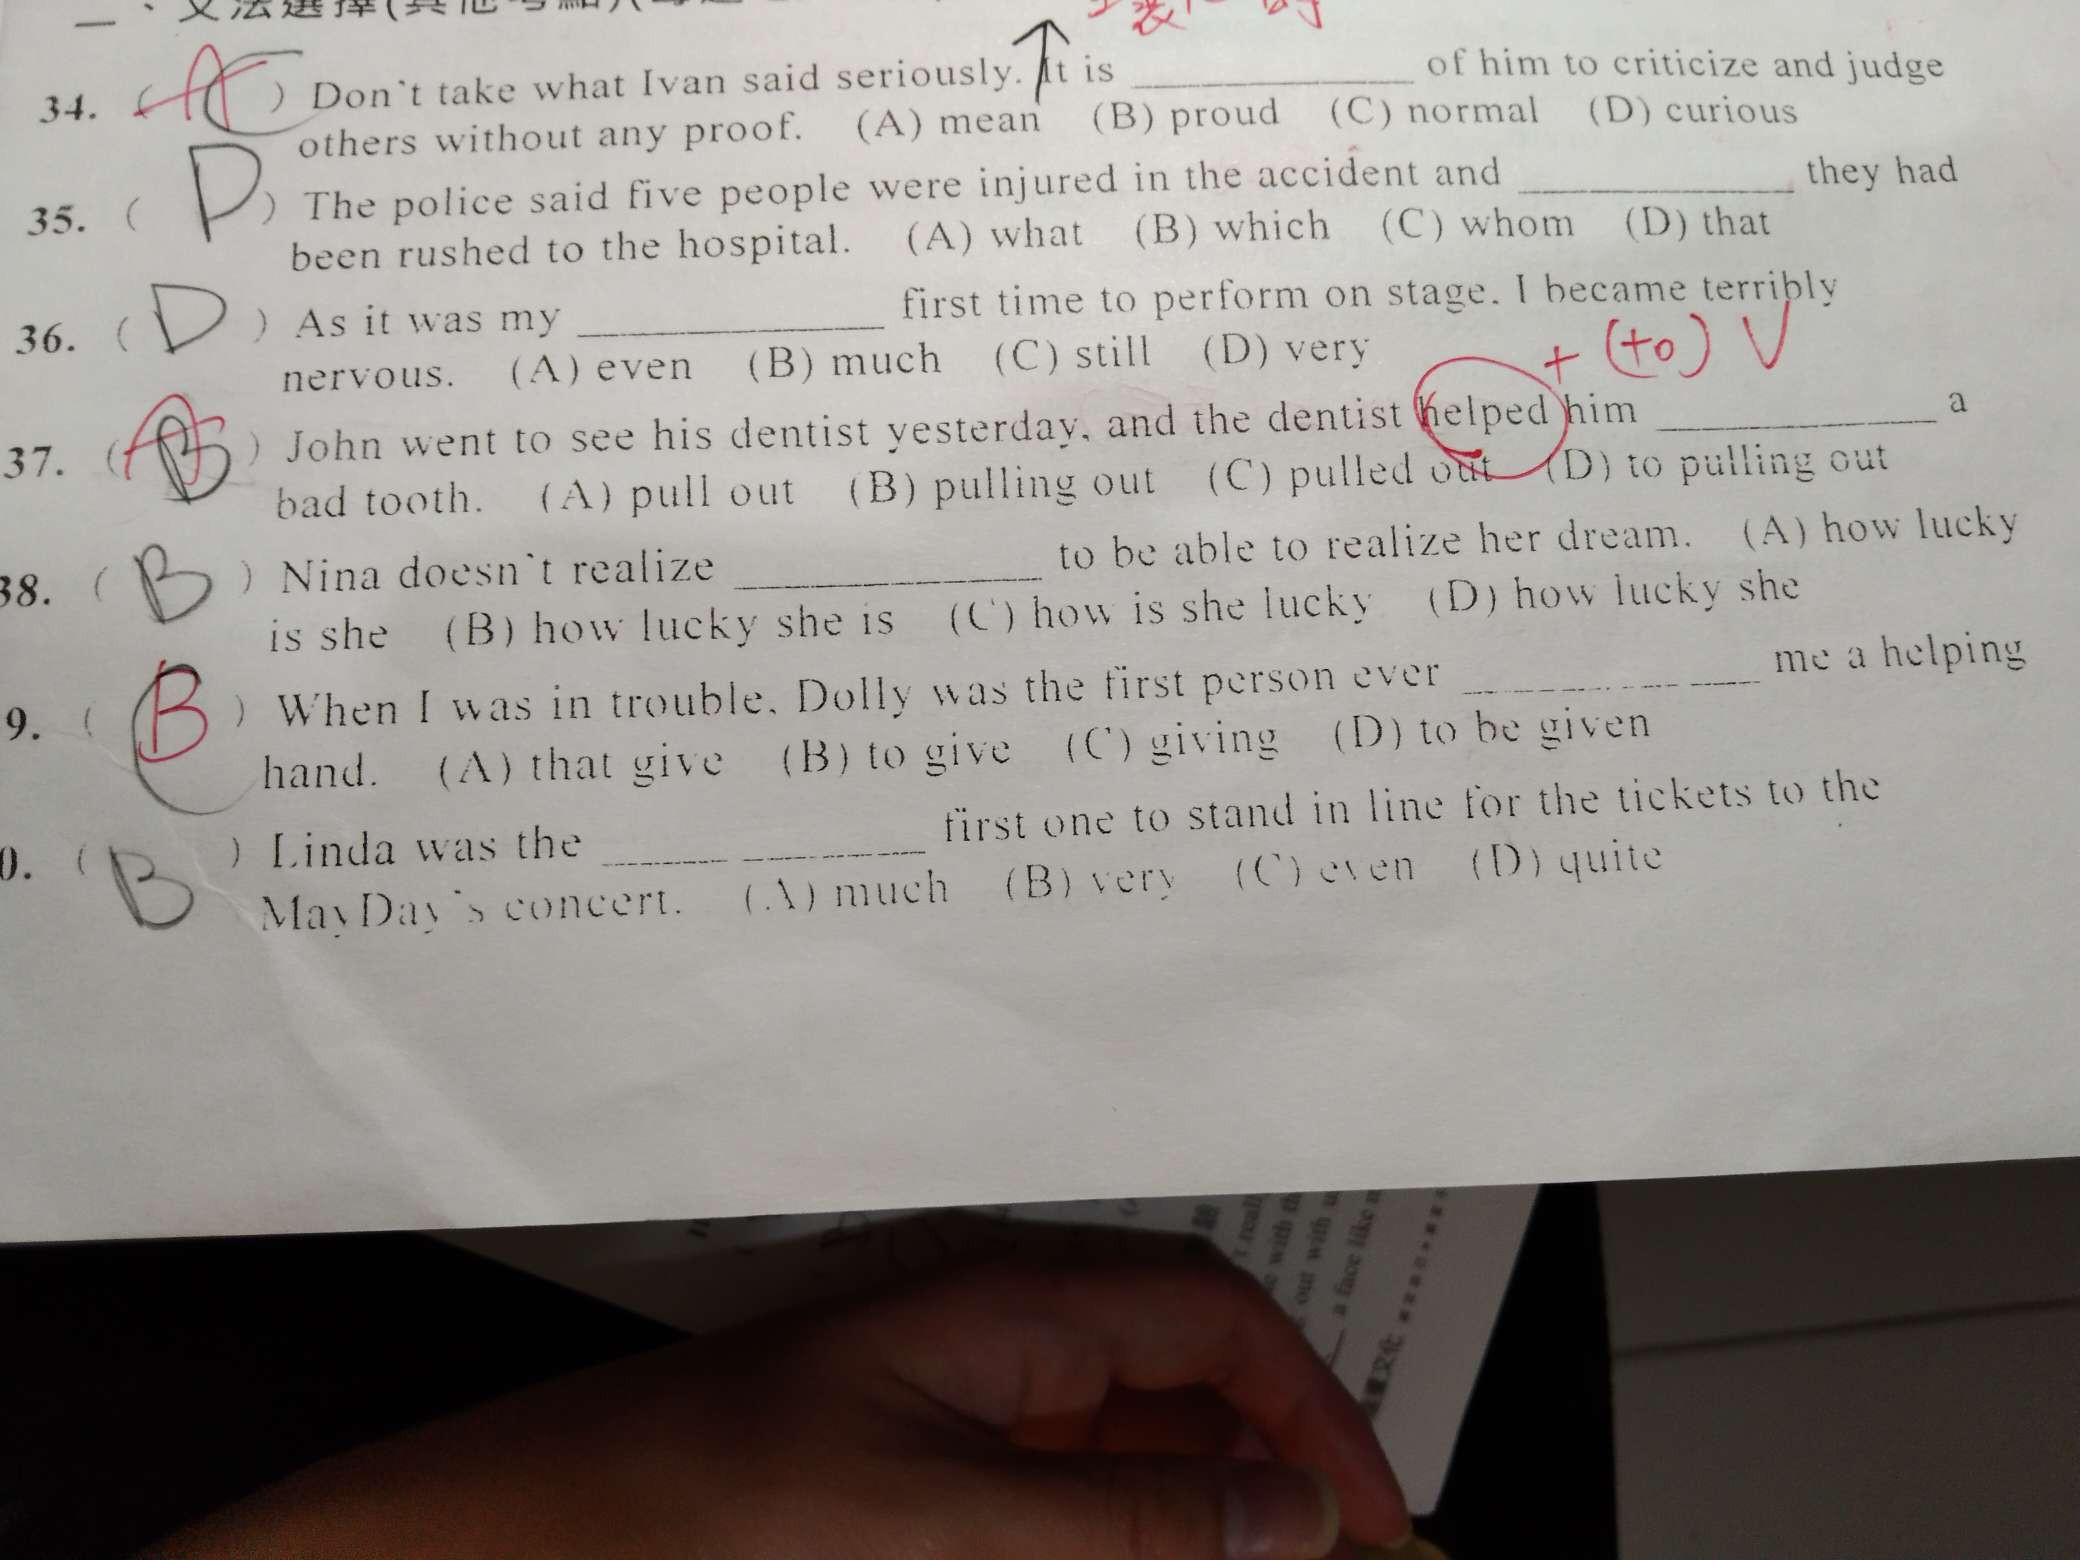 二、文法選擇(其他考點)(每
34. ( A C ) Don't take what Ivan said seriously. It is ____________ of him to criticize and judge
others without any proof. (A) mean (B) proud (C) normal (D) curious
35. ( D ) The police said five people were injured in the accident and ____________ they had
been rushed to the hospital. (A) what (B) which (C) whom (D) that
36. ( D ) As it was my ____________ first time to perform on stage. I became terribly
nervous. (A) even (B) much (C) still (D) very
+ (to) V
37. ( A B ) John went to see his dentist yesterday, and the dentist helped him ____________ a
bad tooth. (A) pull out (B) pulling out (C) pulled out (D) to pulling out
38. ( B ) Nina doesn't realize ____________ to be able to realize her dream. (A) how lucky
is she (B) how lucky she is (C) how is she lucky (D) how lucky she
9. ( B ) When I was in trouble, Dolly was the first person ever ____________ me a helping
hand. (A) that give (B) to give (C) giving (D) to be given
0. ( B ) Linda was the ____________ first one to stand in line for the tickets to the
MayDay's concert. (A) much (B) very (C) even (D) quite
out with
a face like